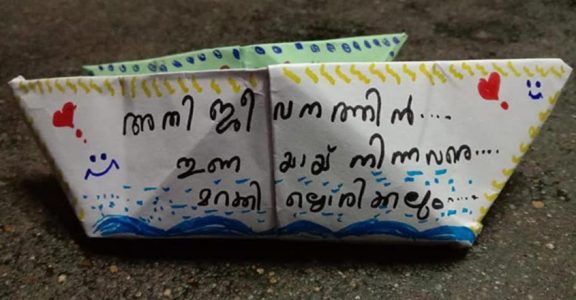 അതി ജീ വനത്തിൻ....
ഇണ യായ് നിന്നവരെ....
മറക്കി ല്ലൊരിക്കലും.....